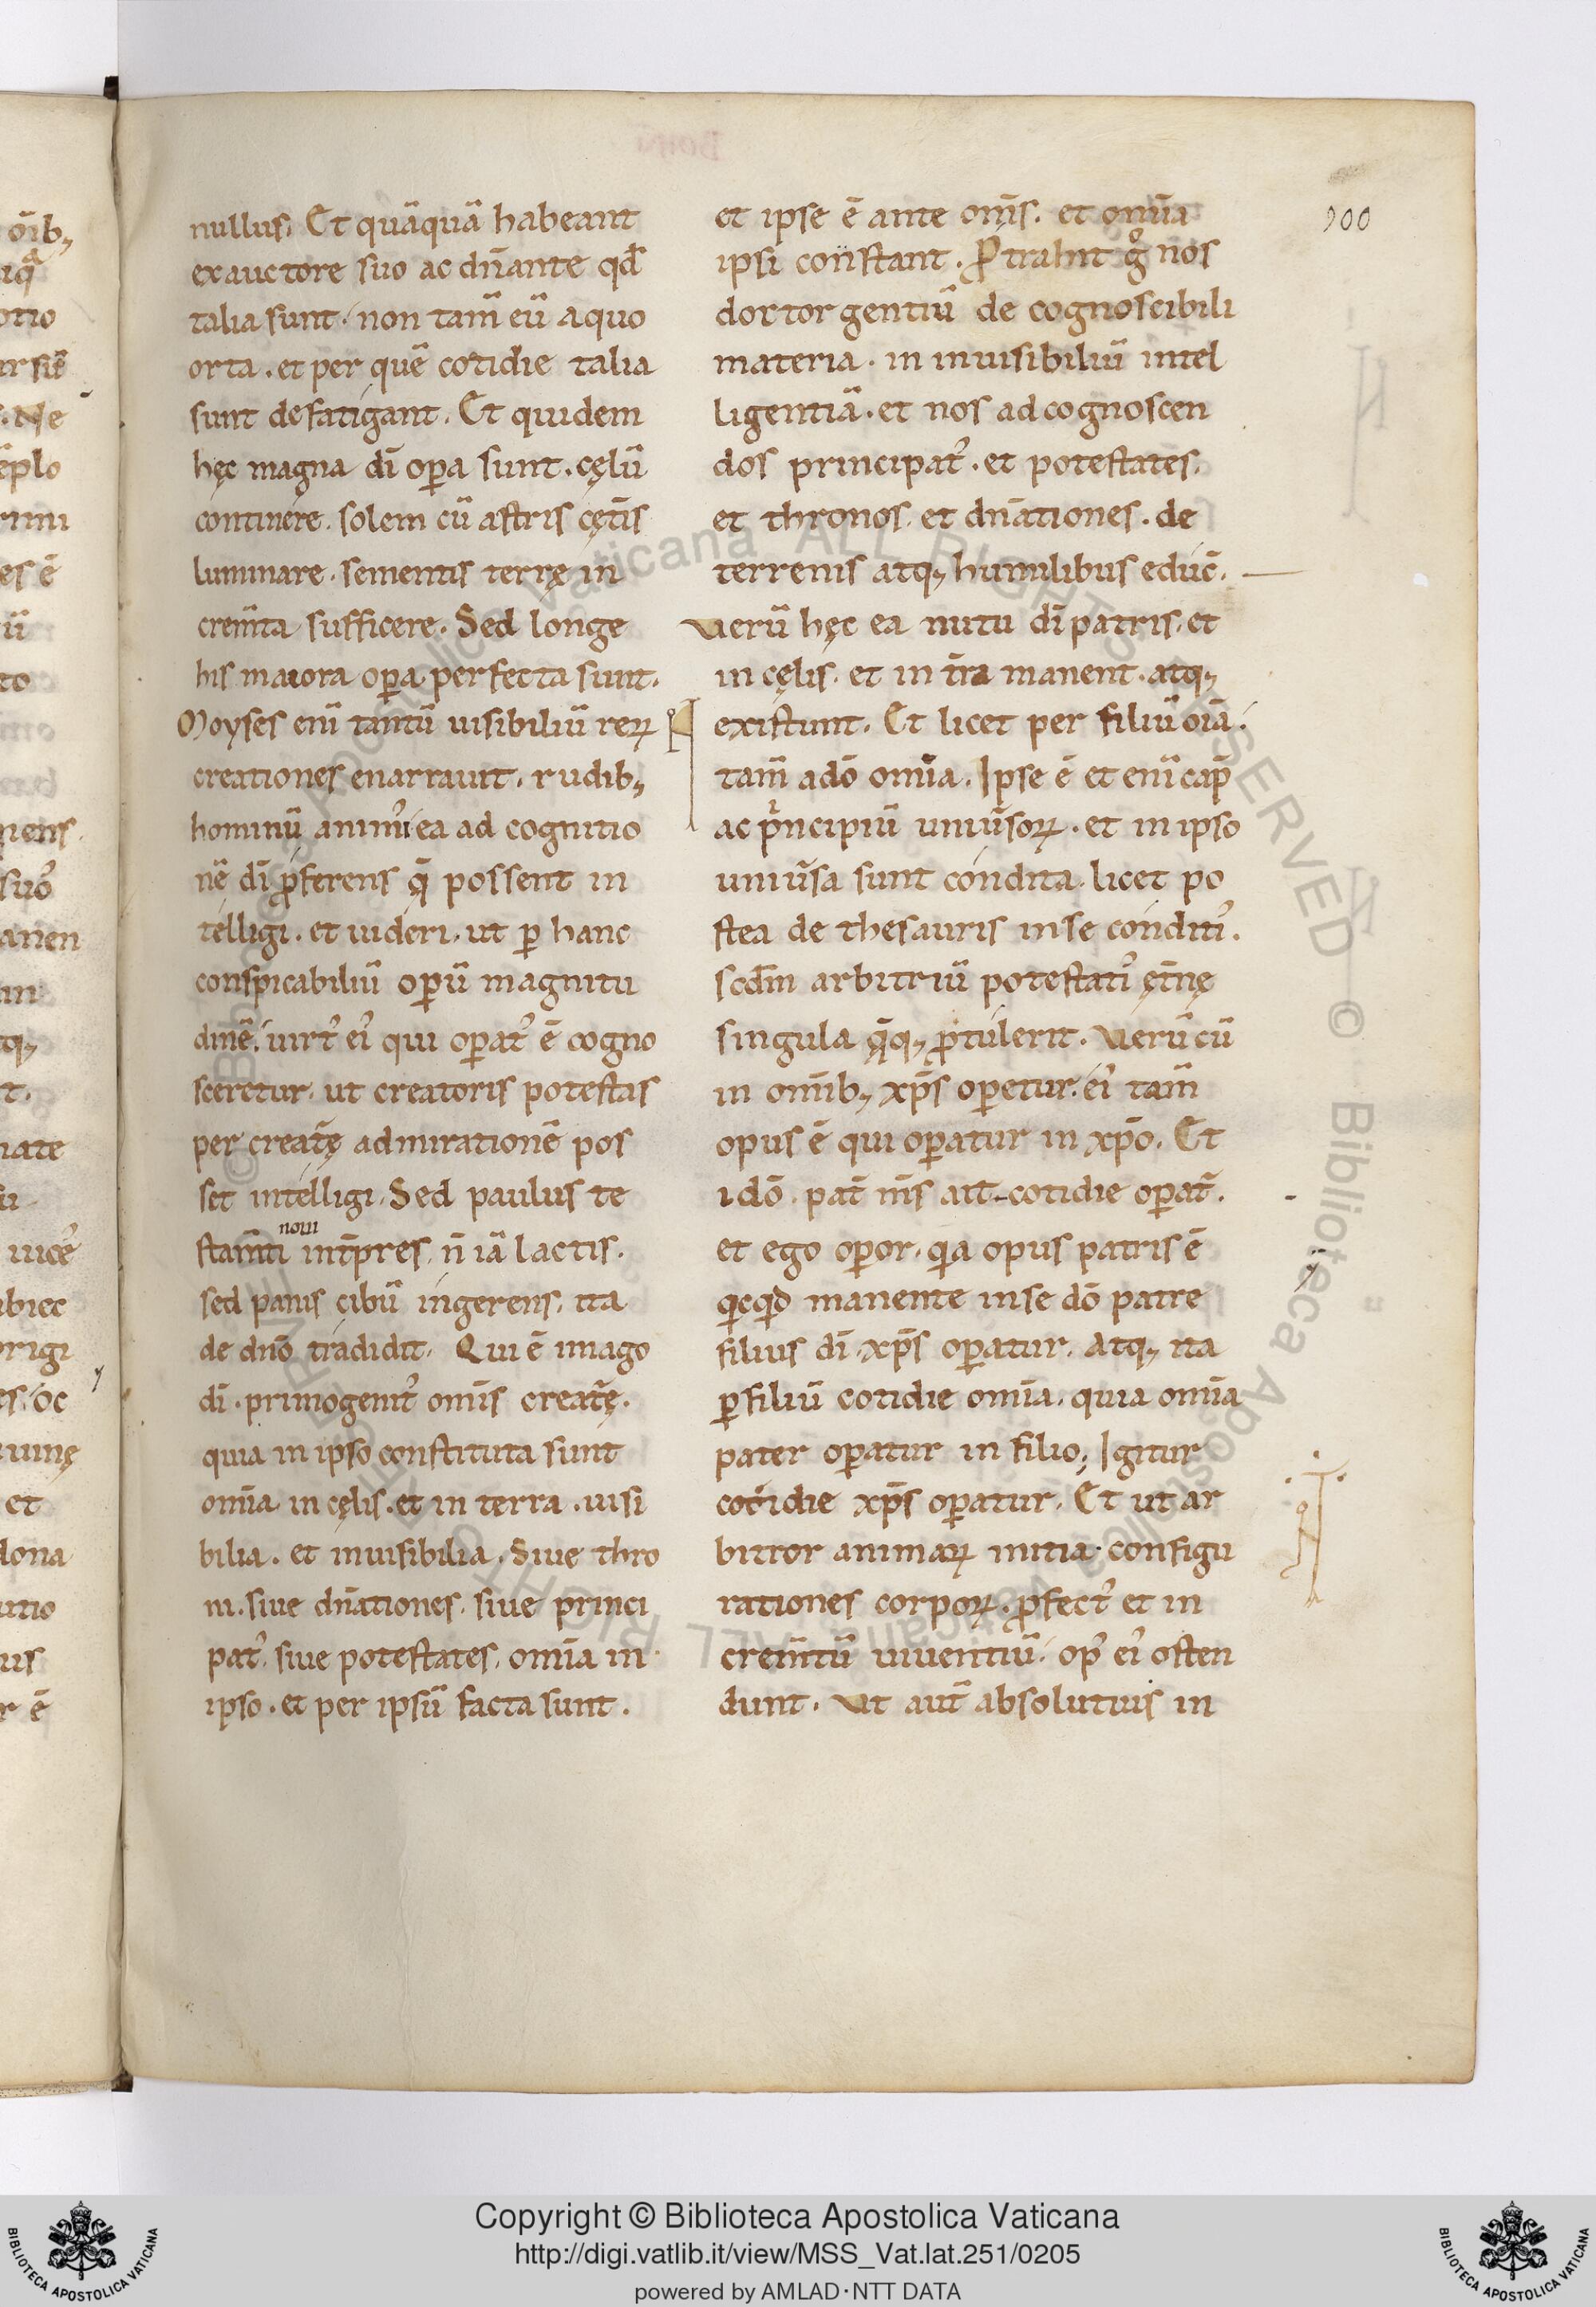 100
nullus. Et quāquā habeant
ex auctore suo ac dn̄ante qd̄
talia sunt. non tam̄ eū a quo
orta. et per quē cotidie talia
sunt defatigant. Et quidem
hęc magna dī oꝑa sunt. cęlū
continere. solem cū astris cęt̄is
luminare. sementis terrę in
crem̄ta sufficere. Sed longe
his maiora oꝑa perfecta sunt.
Moyses enī tantū uisibiliū reꝝ
creationes enarrauit. rudib;
hominū animꝰ ea ad cognitio
nē dī ꝓferens q̄ possent in
telligi. et uideri. ut ꝑ hanc
conspicabiliū oꝑū magnitu
dinē. uirtꝰ eiꝰ qui oꝑatꝰ ē cogno
sceretur. ut creatoris potestas
per creat̄ę admirationē pos
set intelligi. Sed paulus te
stam̄ti noui int̄pres. n̄ iā lactis.
sed panis cibū ingerens. ita
de dn̄o tradidit. Qui ē imago
dī. primogenitꝰ omīs creat̄ę.
quia in ipso constituta sunt
om̄ia in cęlis. et in terra. uisi
bilia. et inuisibilia. Siue thro
ni. siue dn̄ationes. siue princi
patꝰ. siue potestates. om̄ia in
ipso. et per ipsū facta sunt.
et ipse ē ante om̄s. et om̄ia
ipsi constant. Ꝓtrahit gͦ nos
doctor gentiū de cognoscibili
materia. in inuisibiliū intel
ligentiā. et nos ad cognoscen
dos principatꝰ. et potestates.
et thronos. et dn̄ationes. de
terrenis atq; humilibus educ̄.
Uerū hęc ea nutu dī patris. et
in cęlis. et in t̄ra manent. atq;
existunt. Et licet per filiū oīa.
tam̄ a dō om̄ia. Ipse ē et enī cap̄
ac pͥncipiū uniūsoꝝ. et in ipso
uniūsa sunt condita. licet po
stea de thesauris in se conditꝰ.
scdm̄ arbitriū potestatꝰ ęt̄nę
singula q̄q; ꝓtulerit. Uerū cū
in om̄ib; xp̄s oꝑetur. eiꝰ tam̄
opus ē qui oꝑatur in xp̄o. Et
idō. pat̄ m̄s ait cotidie oꝑat̄.
et ego oꝑor. qͥa opus patris ē
qͥcqͥd manente in se dō patre
filius dī xp̄s oꝑatur. Atq; ita
ꝑ filiū cotidie om̄ia. quia om̄ia
pater oꝑatur in filio. Igitur
cotidie xp̄s oꝑatur. Et ut ar
bitror animaꝝ initia. configu
rationes corpoꝝ. ꝓfectꝰ et in
crem̄tū uiuentiū. opꝰ eiꝰ osten
dunt. Ut aut̄ absolutius in
Copyright © Biblioteca Apostolica Vaticana
http://digi.vatlib.it/view/MSS_Vat.lat.251/0205
powered by AMLAD·NTT DATA